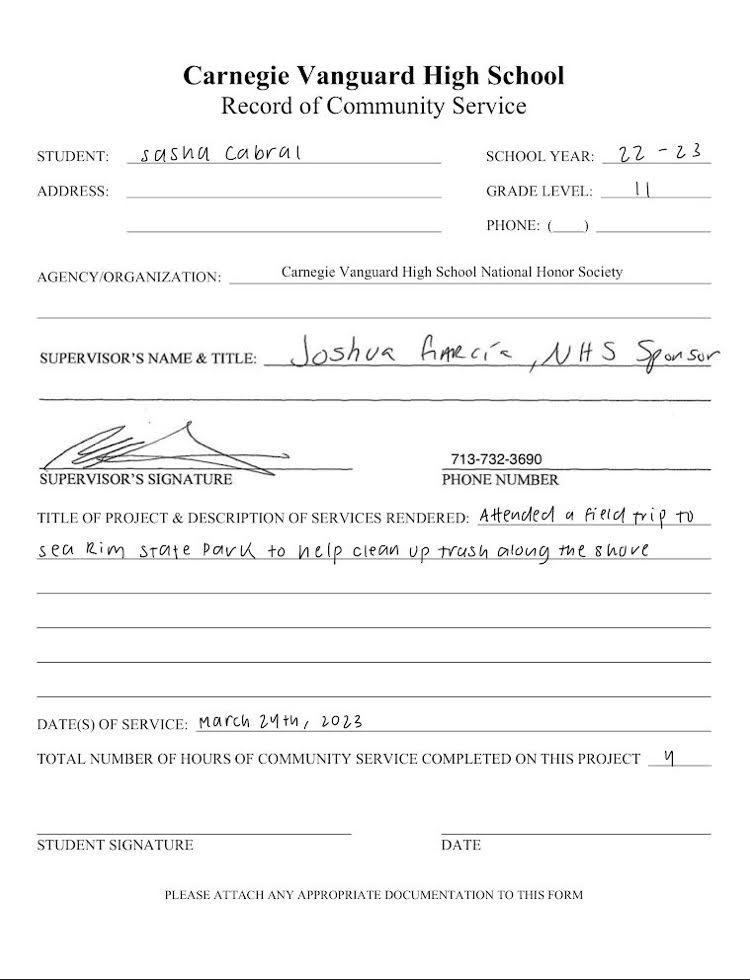 Carnegie Vanguard High School
Record of Community Service
STUDENT: sasha cabral SCHOOL YEAR: 22-23
ADDRESS: GRADE LEVEL: 11
PHONE: (___)
AGENCY/ORGANIZATION: Carnegie Vanguard High School National Honor Society
SUPERVISOR'S NAME & TITLE: Joshua Garcia, NHS Sponsor
713-732-3690
SUPERVISOR'S SIGNATURE PHONE NUMBER
TITLE OF PROJECT & DESCRIPTION OF SERVICES RENDERED: Attended a field trip to
sea Rim state park to help clean up trash along the shore
DATE(S) OF SERVICE: March 24th, 2023
TOTAL NUMBER OF HOURS OF COMMUNITY SERVICE COMPLETED ON THIS PROJECT 4
STUDENT SIGNATURE DATE
PLEASE ATTACH ANY APPROPRIATE DOCUMENTATION TO THIS FORM